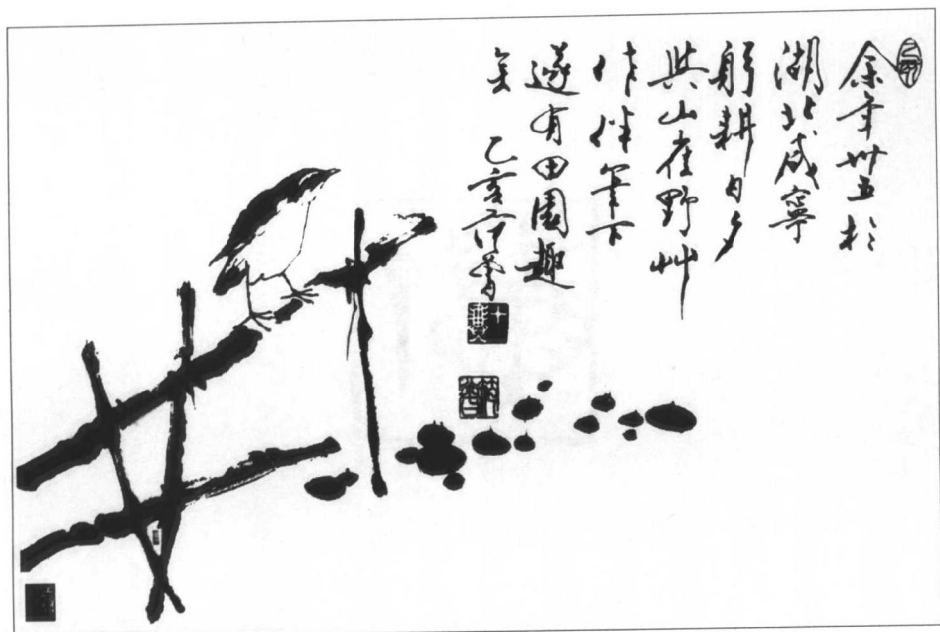 余年卅五於
湖北咸寧
躬耕日夕
與山雀野艸
作伴筆下
遂有田園趣
矣
乙亥 范曾